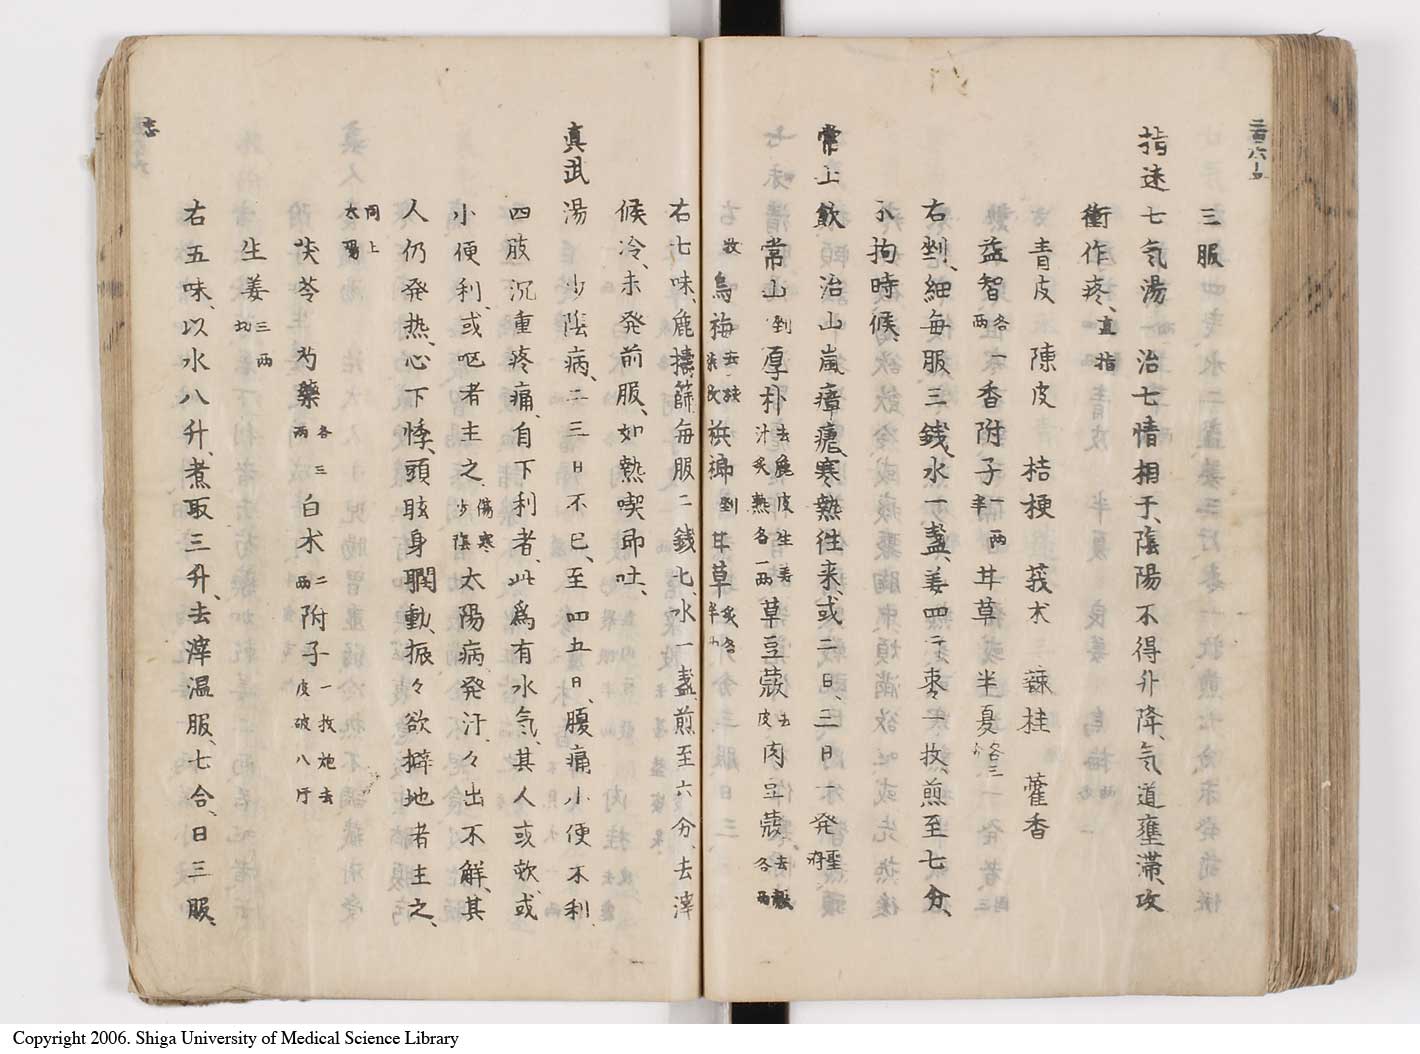 三服
指迷七気湯　治七情相干、陰陽不得升降、気道壅滞、攻
衝作疼、直指
青皮　陳皮　桔梗　莪朮　辣桂　藿香
益智各一両　香附子一両半　甘草　半夏各三分
右剉、細毎服三銭、水一盞、姜四片棗一枚煎至七分、
不拘時候
常山飲　治山嵐瘴瘧、寒熱往来、或二日、三日一発聖済
常山剉　厚朴去麁皮生姜汁炙熟各一両　草豆蔲去皮　肉豆蔲去殻各両
枚　烏梅去核　檳榔剉　甘草炙各半
右七味、麁擣篩毎服二銭匕、水一盞、煎至六分、去滓
候冷、未発前服、如熱喫即吐、
真武湯　少陰病、二三日不已、至四五日、腹痛小便不利
四肢沉重疼痛、自下利者、此為有水気、其人或欬、或
小便利、或呕者主之、傷寒少陰　太陽病発汗、々出不解、其
人仍発热、心下悸、頭眩身瞤動、振々欲擗地者主之、
同上太陽
茯苓　芍藥各三両　白朮二両　附子一枚炮去皮破八片
生姜三両切
右五味、以水八升、煮取三升、去滓温服、七合、日三服、
Copyright 2006. Shiga University of Medical Science Library